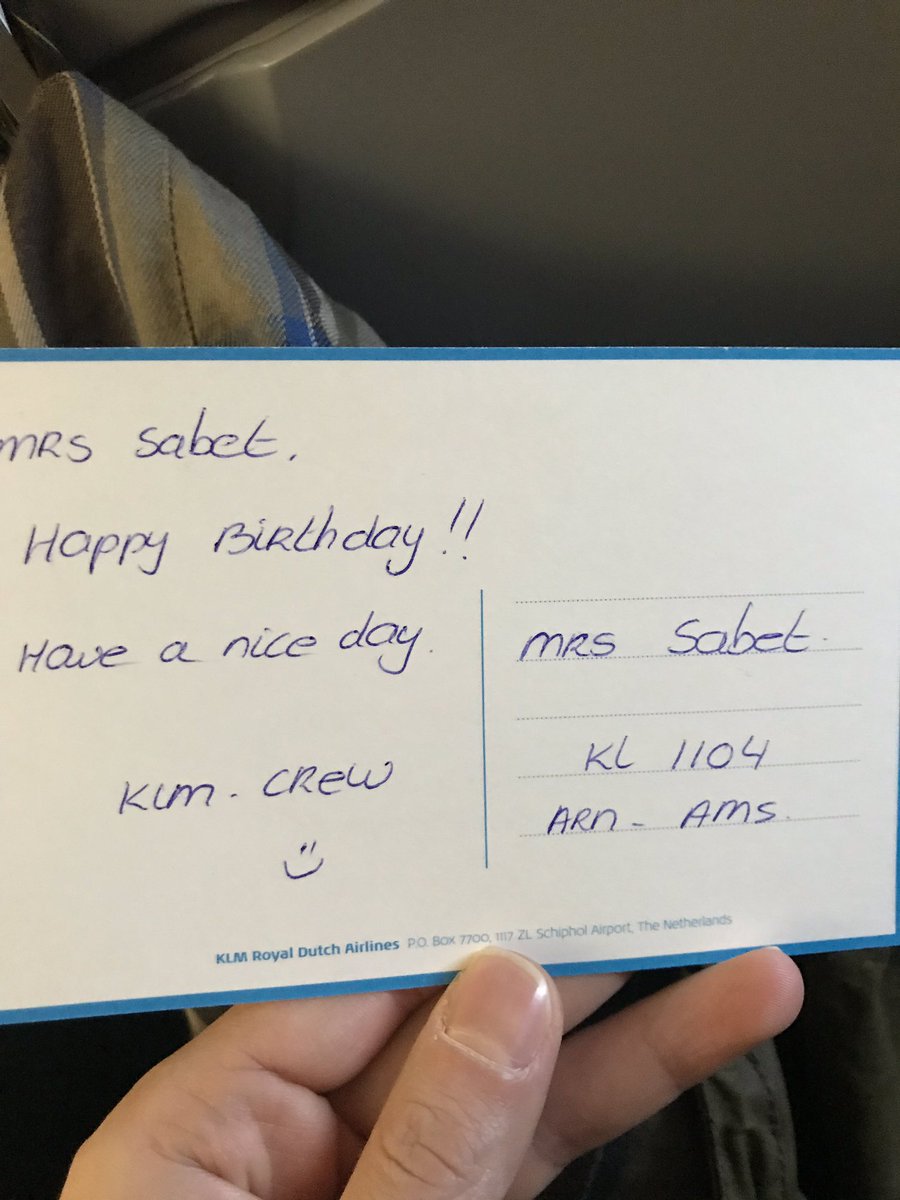 MRS Sabet.
Happy Birthday!!
Have a nice day.
KLM. CREW
MRS Sabet.
KL 1104
ARN - AMS.
KLM Royal Dutch Airlines P.O. Box 7700, 1117 ZL Schiphol Airport, The Netherlands